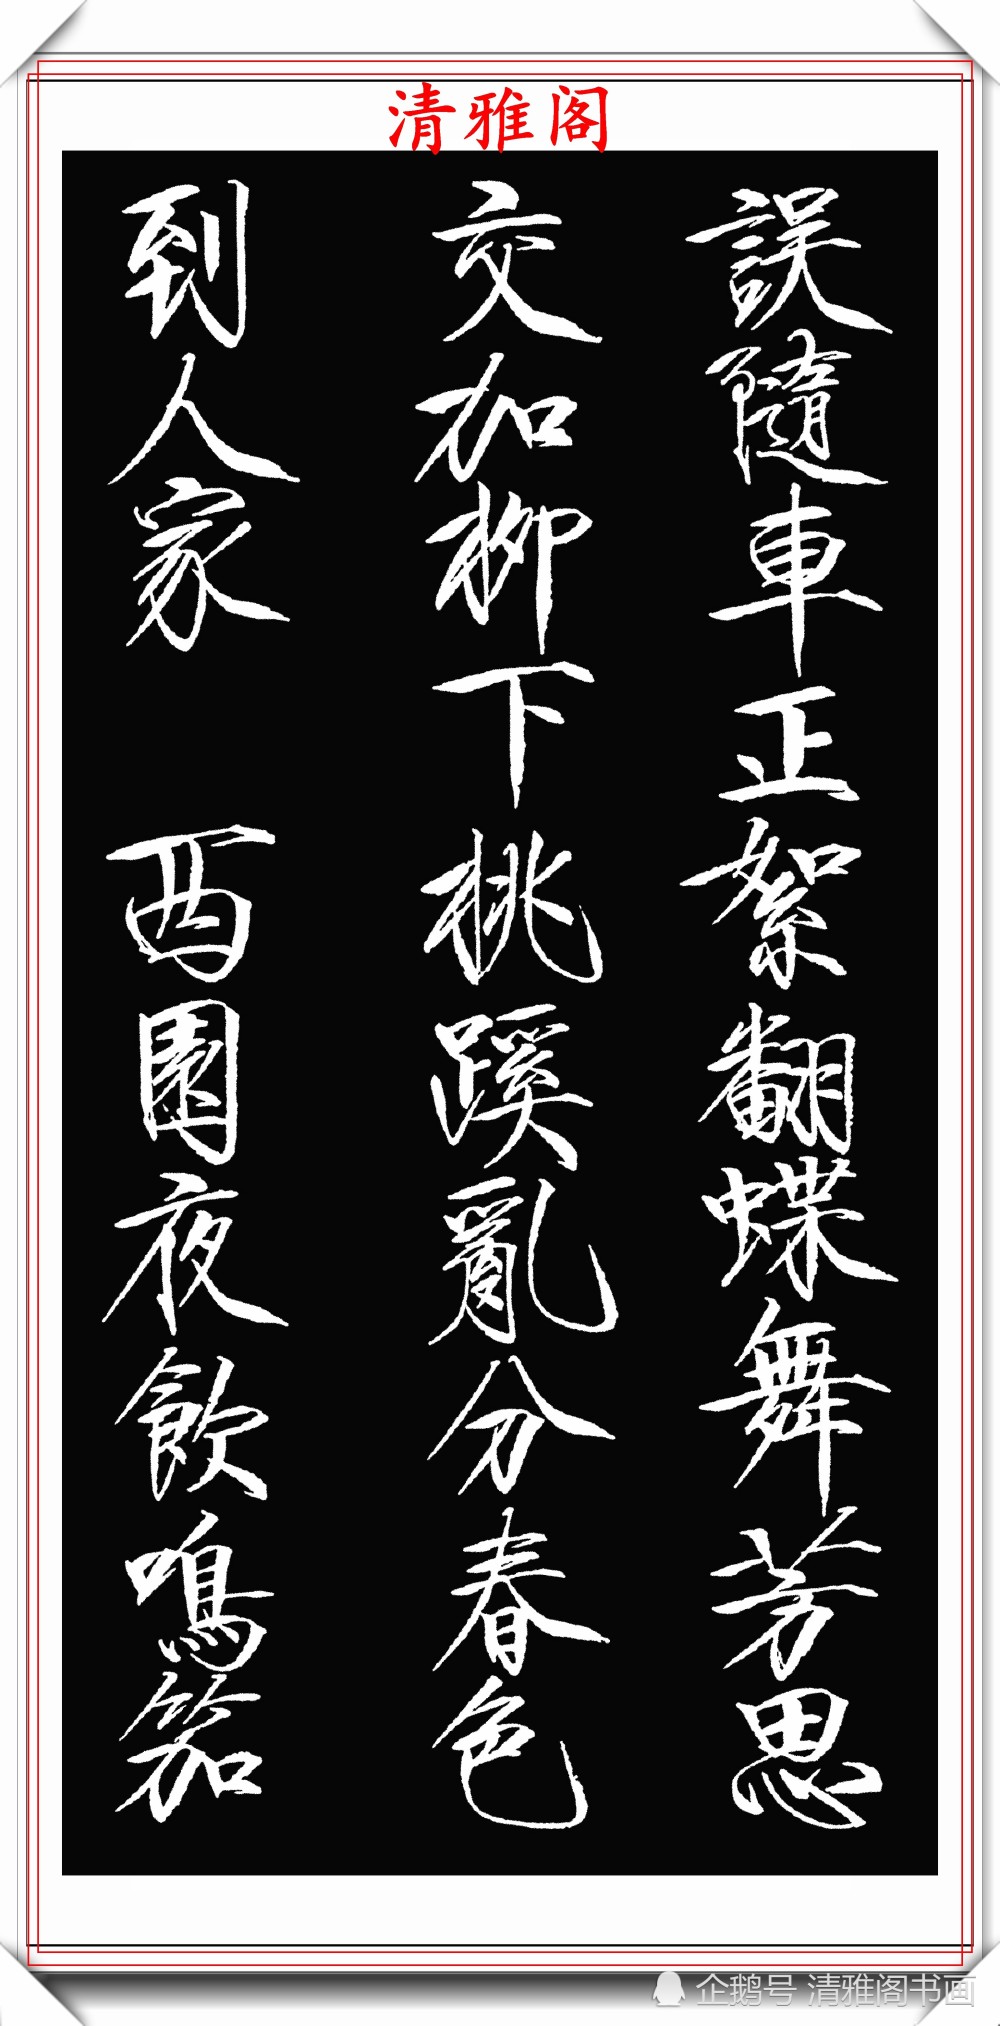 清雅阁
誤隨車正絮翻蝶舞芳思
交加柳下桃蹊亂分春色
到人家 西園夜飲鳴笳
企鹅号 清雅阁书画